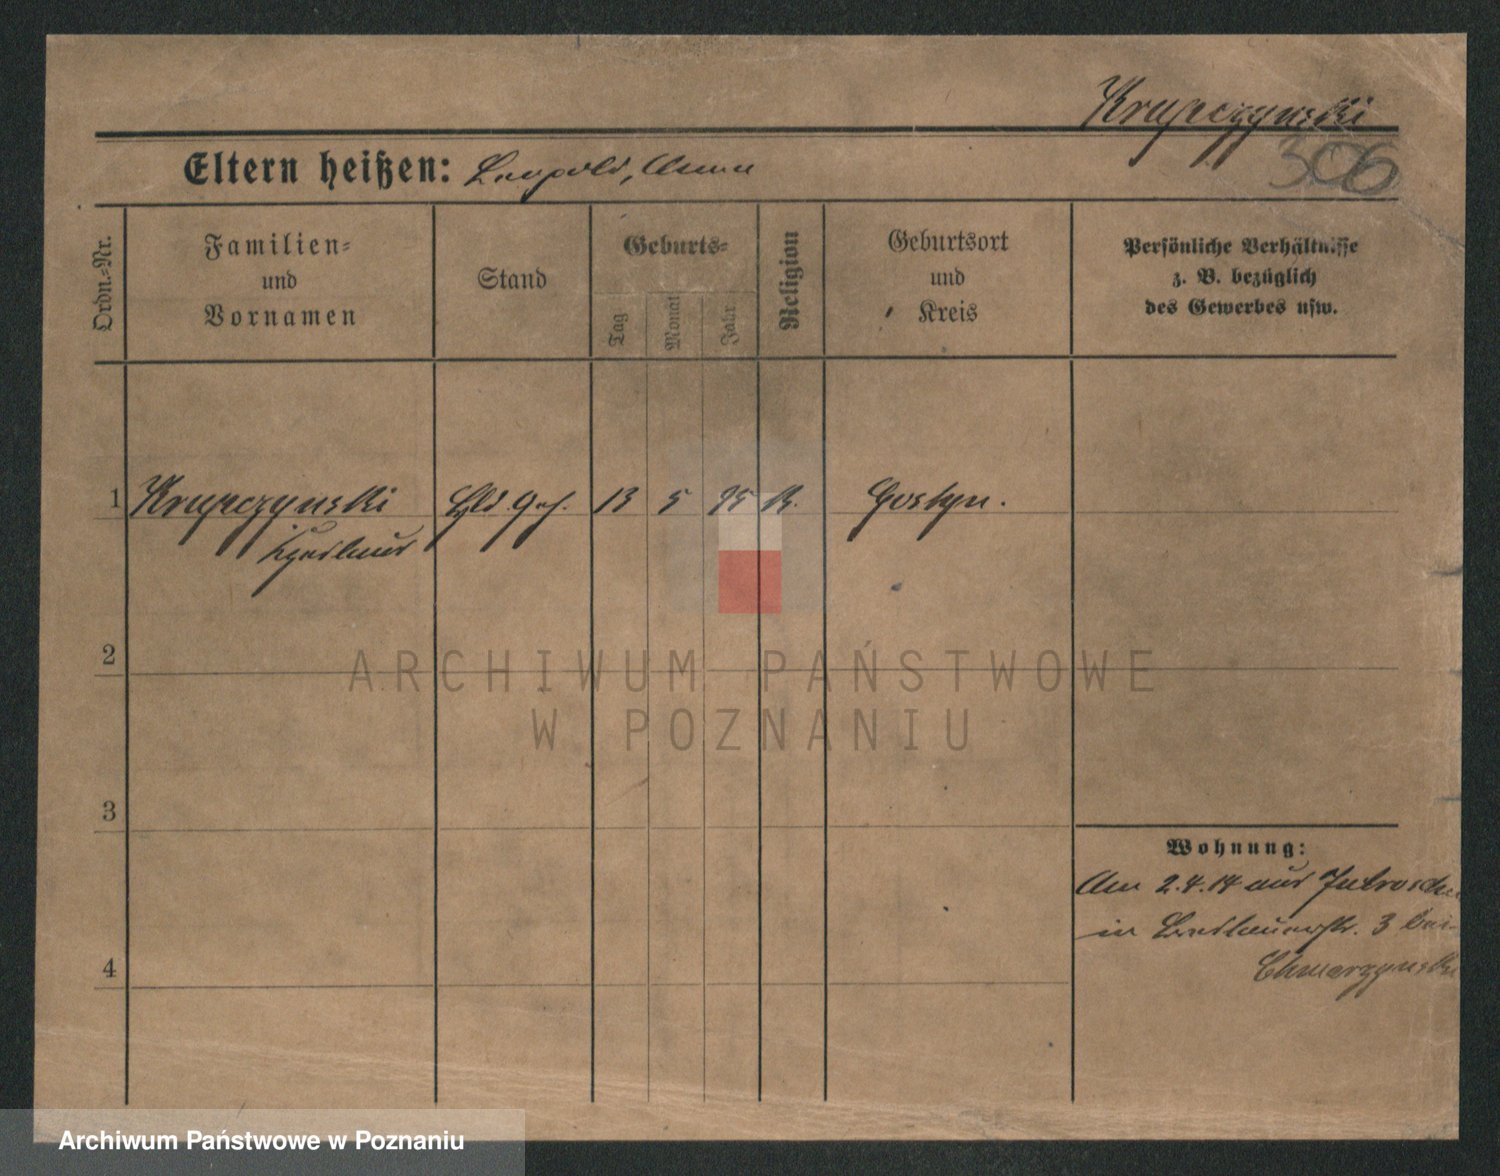 Krupczynski
306
Eltern heißen: Leopold, Anna
Ordn.-Nr.
Familien-
und
Vornamen
Stand
Geburts-
Tag
Monat
Jahr
Religion
Geburtsort
und
Kreis
Persönliche Verhältnisse
z. B. bezüglich
des Gewerbes usw.
1 Krupczynski 13 5 95 K. Gostyn.
2
3
4
Wohnung:
Am 2.4.14 aus Jutroschin
in Breslauerstr. 3 bei
Chmarzynski
ARCHIWUM PAŃSTWOWE
W POZNANIU
Archiwum Państwowe w Poznaniu